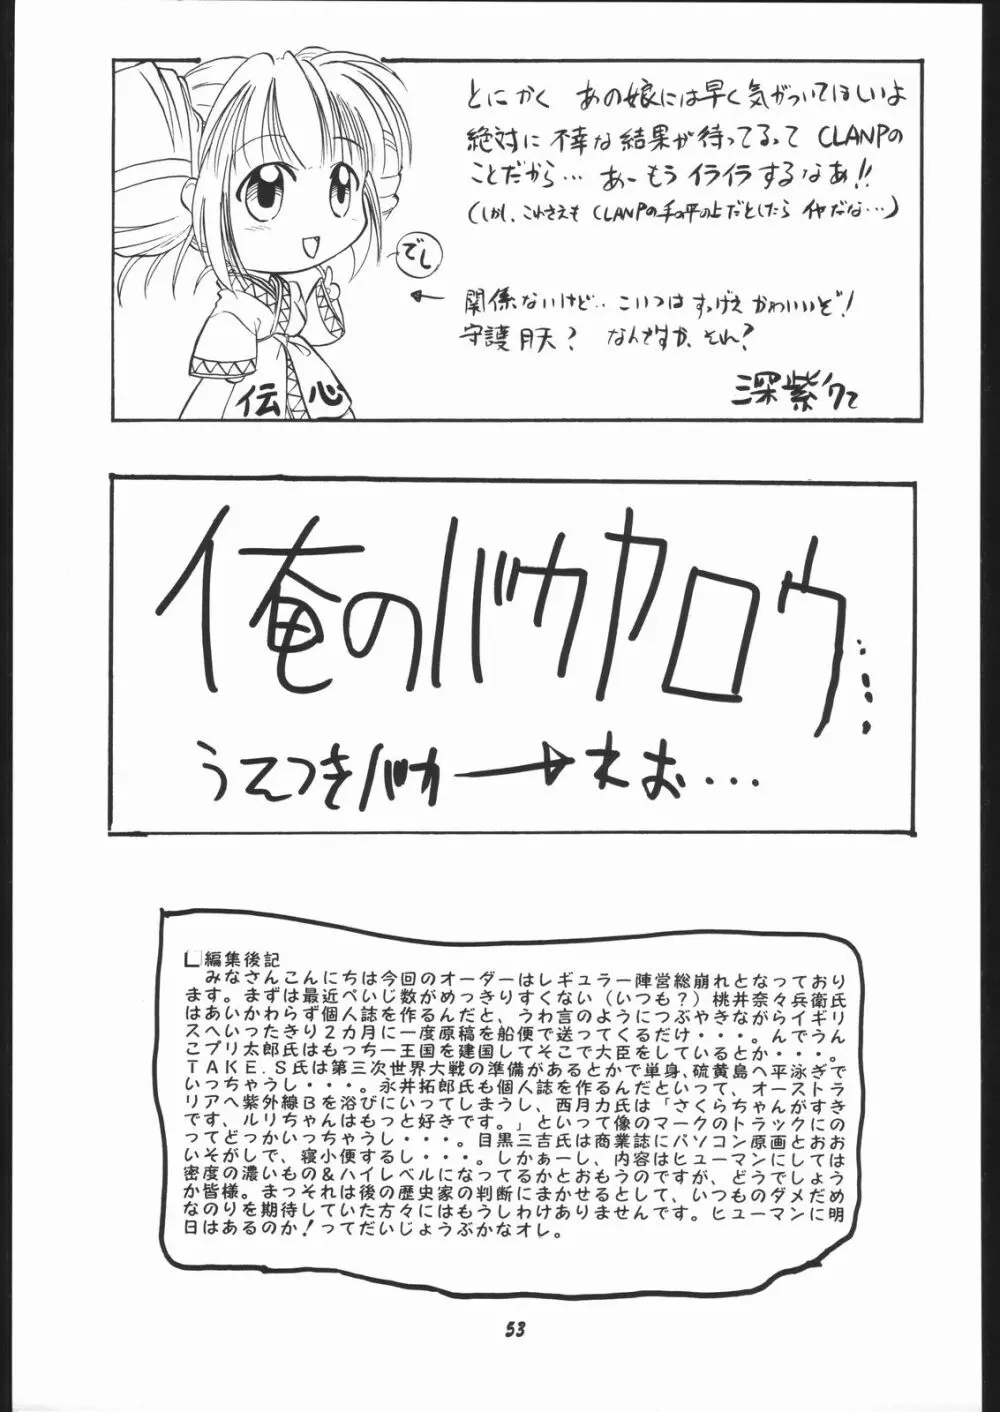 とにかく あの娘には早く気がついてほしいよ
絶対に不幸な結果が待ってるって CLANPの
ことだから… あーもうイライラするなあ!!
(しかし、これさえも CLANPの手の平の上だとしたら イヤだな…)
でし
←
関係ないけど.. こいつは すっげえ かわいいぞ!
守護月天? なんですか、それ?
深紫
伝心
俺のバカヤロウ…
うえつきバカ → ねお…
編集後記
みなさんこんにちは今回のオーダーはレギュラー陣営総崩れとなっており
ます。まずは最近ぺいじ数がめっきりすくない(いつも?)桃井奈々兵衛氏
はあいかわらず個人誌を作るんだと、うわ言のようにつぶやきながらイギリ
スへいったきり2カ月に一度原稿を船便で送ってくるだけ・・・。んでうん
こプリ太郎氏はもっちー王国を建国してそこで大臣をしているとか・・・。
TAKE.S氏は第三次世界大戦の準備があるとかで単身、硫黄島へ平泳ぎで
いっちゃうし・・・。永井拓郎氏も個人誌を作るんだといって、オーストラ
リアへ紫外線Bを浴びにいってしまうし、西月力氏は「さくらちゃんがすき
です、ルリちゃんはもっと好きです。」といって像のマークのトラックにの
ってどっかいっちゃうし・・・。目黒三吉氏は商業誌にパソコン原画とおお
いそがしで、寝小便するし・・・。しかぁーし、内容はヒューマンにしては
密度の濃いもの&ハイレベルになってるかとおもうのですが、どうでしょう
か皆様。まっそれは後の歴史家の判断にまかせるとして、いつものダメだめ
なのりを期待していた方々にはもうしわけありませんです。ヒューマンに明
日はあるのか!ってだいじょうぶかなオレ。
53